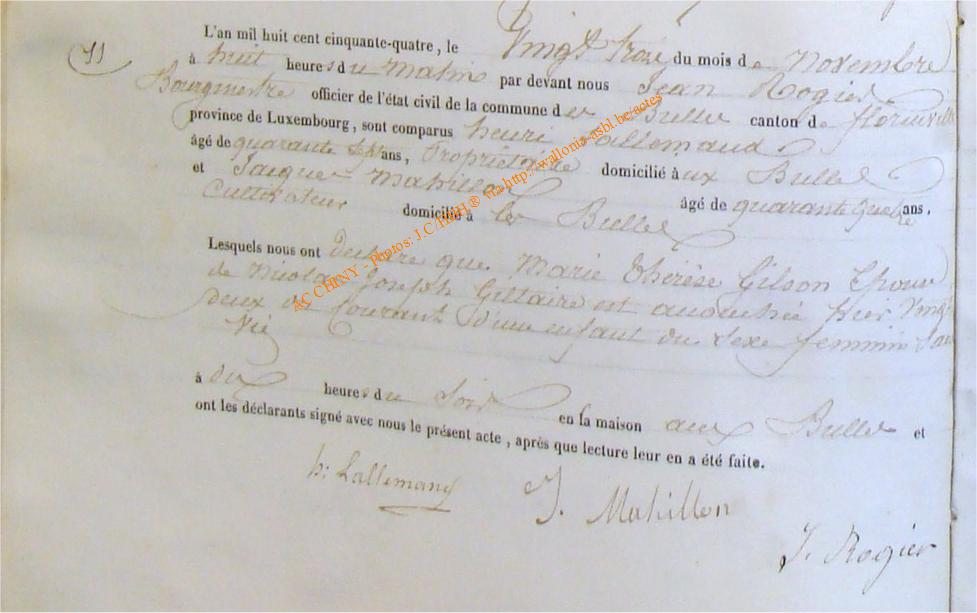 11
L'an mil huit cent cinquante-quatre, le Vingt trois du mois de Novembre
à huit heures du matin par devant nous Jean Rogier
Bourgmestre officier de l'état civil de la commune des Bulles canton de florenville
province de Luxembourg, sont comparus henri Lallemand
âgé de quarante sept ans, Propriétaire domicilié aux Bulles
et Jacques Mahillon âgé de quarante quatre ans,
Cultivateur domicilié à les Bulles
Lesquels nous ont déclaré que Marie thérèse Gilson Epouse
de Nicolas Joseph Gillaire est accouchée hier Vingt
deux du courant d'une enfant du sexe feminin San
Vie
à dix heures du Soir en la maison aux Bulles et
ont les déclarants signé avec nous le présent acte, après que lecture leur en a été faite.
h: Lallemand
J. Mahillon
J. Rogier
AC CHINY - Photos: J.C. via http://wallonia-asbl.be/actes